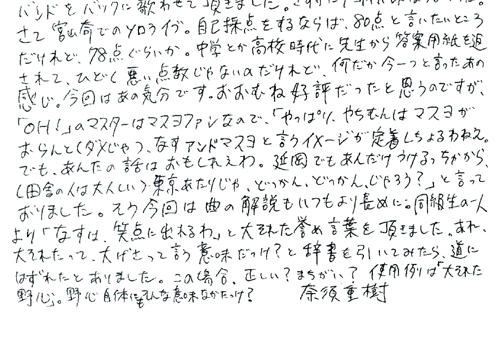 バンドをバックに歌わせて頂きました。
さて宮崎でのソロライブ。自己採点をするならば、80点と言いたいところ
だけれど、78点ぐらいか。中学とか高校時代に先生から答案用紙を返
されて、ひどく悪い点数じゃないのだけれど、何だか今一つと言ったあの
感じ。今回はあの気分です。おおむね好評だったと思うのですが、
「OH!」のマスターはマスヨファンなので、「やっぱり、やちむんはマスヨが
おらんと(ダメじゃ)、なすアンドマスヨと言うイメージが定着しちょるわねえ。
でも、あんたの話はおもしれえわ。延岡でもあんだけうけるっちゃから、
(田舎の人は大人しい)東京あたりじゃ、どっかん、どっかん、じゃろう?」と言って
おりました。そう今回は曲の解説もいつもより長めに。同級生の一人
より「なすは、笑点に出れるわ」と大それた誉め言葉を頂きました。あれ、
大それたって、大げさって言う意味だっけ?と辞書を引いてみたら、道に
はずれたとありました。この場合、正しい?まちがい?使用例は「大それた
野心」。野心自体にもそんな意味なかたっけ?　奈須重樹